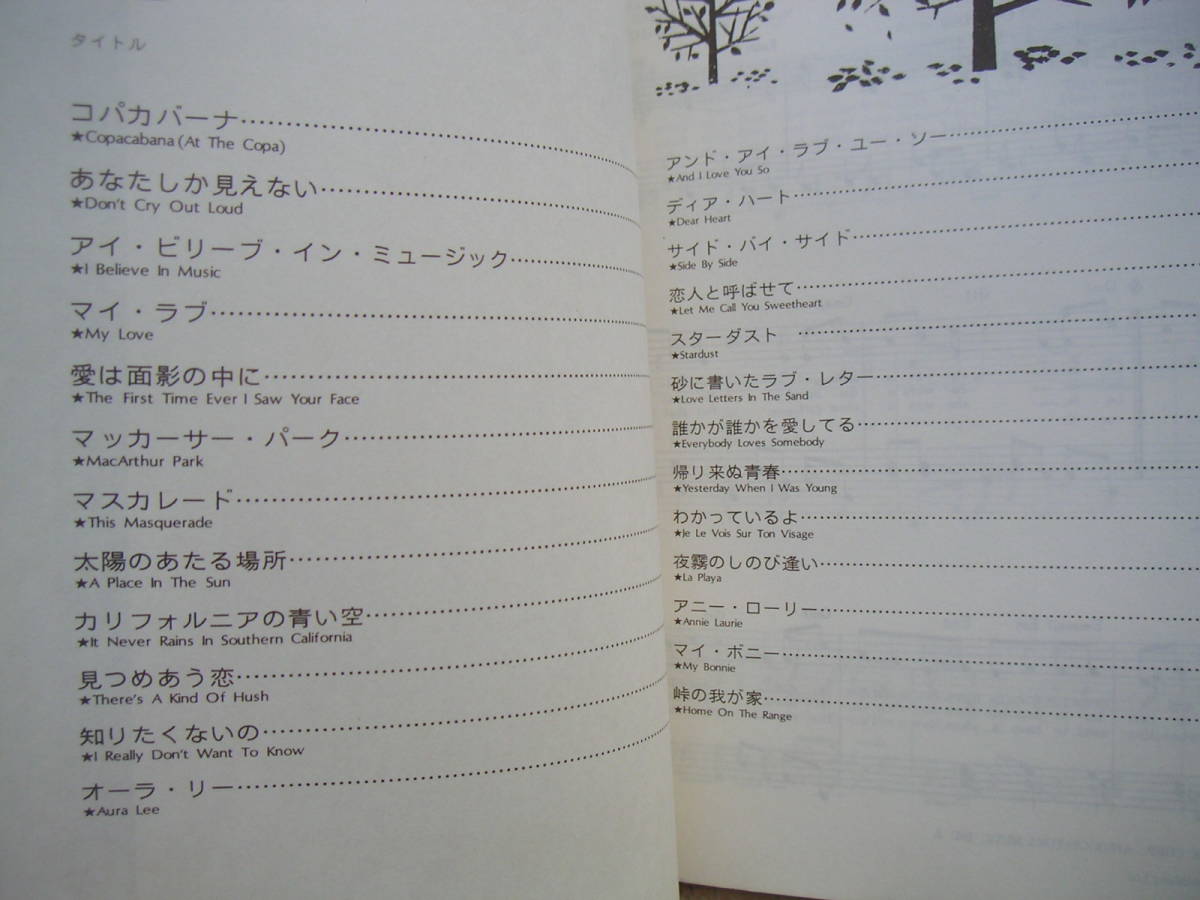 タイトル
コパカバーナ
★Copacabana (At The Copa)
あなたしか見えない
★Don't Cry Out Loud
アイ・ビリーブ・イン・ミュージック
★I Believe In Music
マイ・ラブ
★My Love
愛は面影の中に
★The First Time Ever I Saw Your Face
マッカーサー・パーク
★MacArthur Park
マスカレード
★This Masquerade
太陽のあたる場所
★A Place In The Sun
カリフォルニアの青い空
★It Never Rains In Southern California
見つめあう恋
★There's A Kind Of Hush
知りたくないの
★I Really Don't Want To Know
オーラ・リー
★Aura Lee
アンド・アイ・ラブ・ユー・ソー
★And I Love You So
ディア・ハート
★Dear Heart
サイド・バイ・サイド
★Side By Side
恋人と呼ばせて
★Let Me Call You Sweetheart
スターダスト
★Stardust
砂に書いたラブ・レター
★Love Letters In The Sand
誰かが誰かを愛してる
★Everybody Loves Somebody
帰り来ぬ青春
★Yesterday When I Was Young
わかっているよ
★Je Le Vois Sur Ton Visage
夜霧のしのび逢い
★La Playa
アニー・ローリー
★Annie Laurie
マイ・ボニー
★My Bonnie
峠の我が家
★Home On The Range